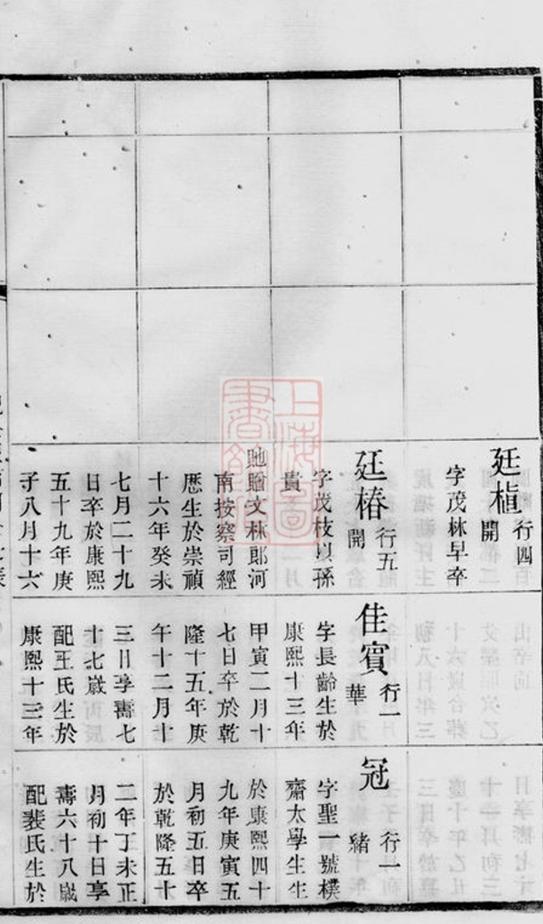 廷植 行四 開
字茂林早卒
廷椿 行五 開
字茂枝以孫
貴
貤贈文林郎河
南按察司經
厯生於崇禎
十六年癸未
七月二十九
日卒於康熙
五十九年庚
子八月十六
佳賓 行一 華
字長齡生於
康熙十三年
甲寅二月十
七日卒於乾
隆十五年庚
午十二月十
三日享壽七
十七歲
配王氏生於
康熙十三年
冠 行一 緒
字聖一號樸
齋太學生生
於康熙四十
九年庚寅五
月初五日卒
於乾隆五十
二年丁未正
月初十日享
壽六十八歲
配裴氏生於
上海圖
書館藏